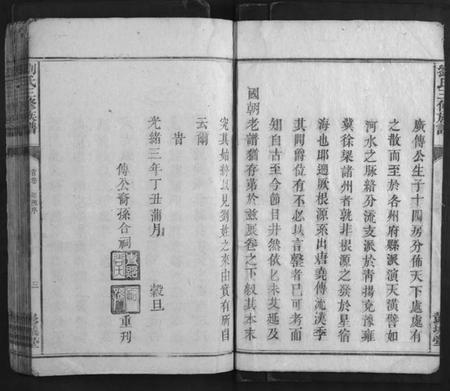 廣傳公生子十四房分佈天下處處有
之散而至於各州府縣派演天潢譬如
河水之脉絡分流支派於青揚兗豫雍
冀徐梁諸州者孰非根源之發於星宿
海也耶廻厥根源系出唐堯傳流漢季
其間爵位有不必以言罄者已可考而
知自古至今節目井然依匕未艾延及
國朝老譜猶存第於玆展卷之下叙其本末
究其始終以見劉姓之來由實有所自
云爾
旹
光緒三年丁丑蒲月 穀旦
傳公裔孫合祠 重刋
劉氏三修族譜
首卷
三